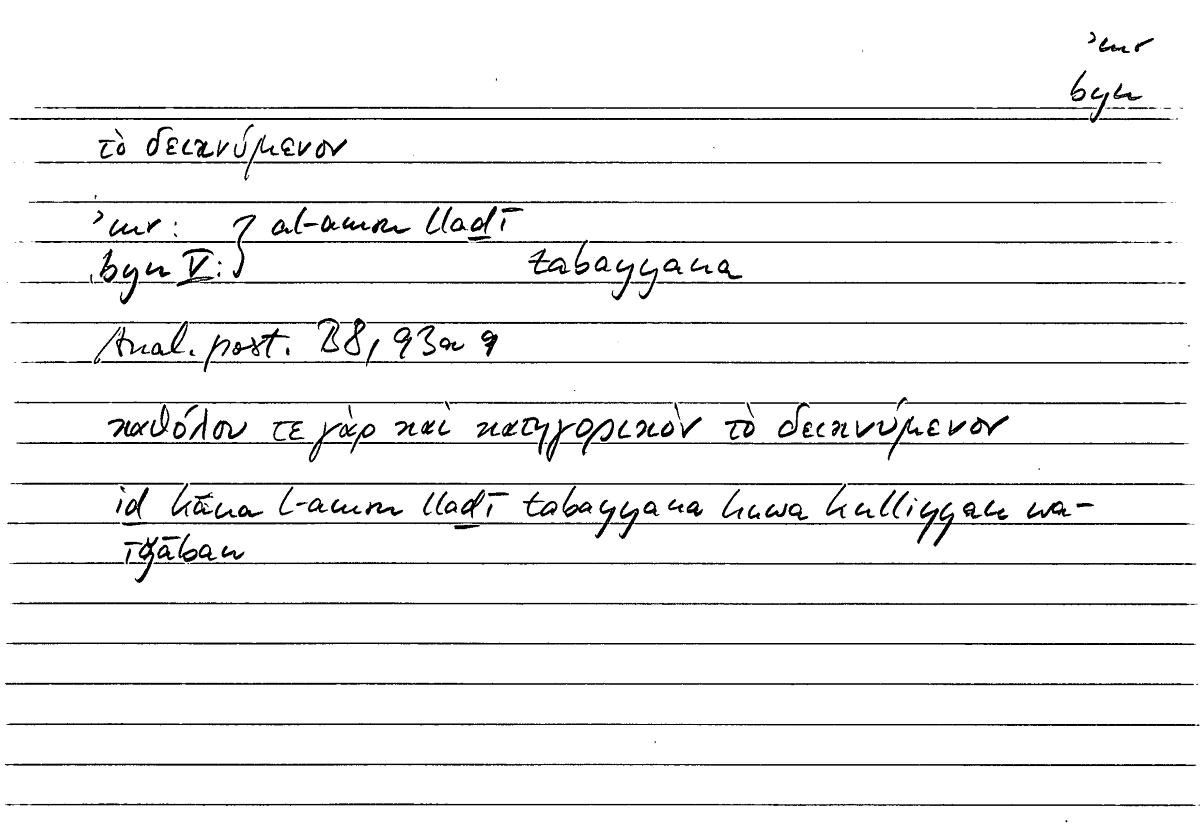 ʾmr
byn
τὸ δεικνύμενον
ʾmr: } al-amru llaḏī
byn V: } tabayyana
Anal. post. B8, 93a 9
καθόλου τε γὰρ καὶ κατηγορικὸν τὸ δεικνύμενον
iḏ kāna l-amru llaḏī tabayyana huwa kulliyyan wa-
īǧāban